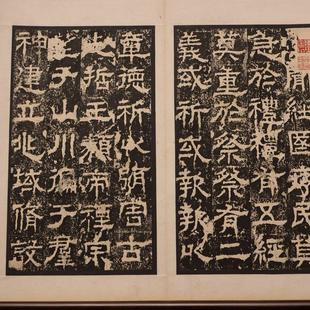 經國序民莫
急於禮禮有五經
莫重於祭祭有二
義或祈或報報以
章德祈以弭害古
先哲王類帝禋宗
望于山川徧于群
神建立兆域脩設